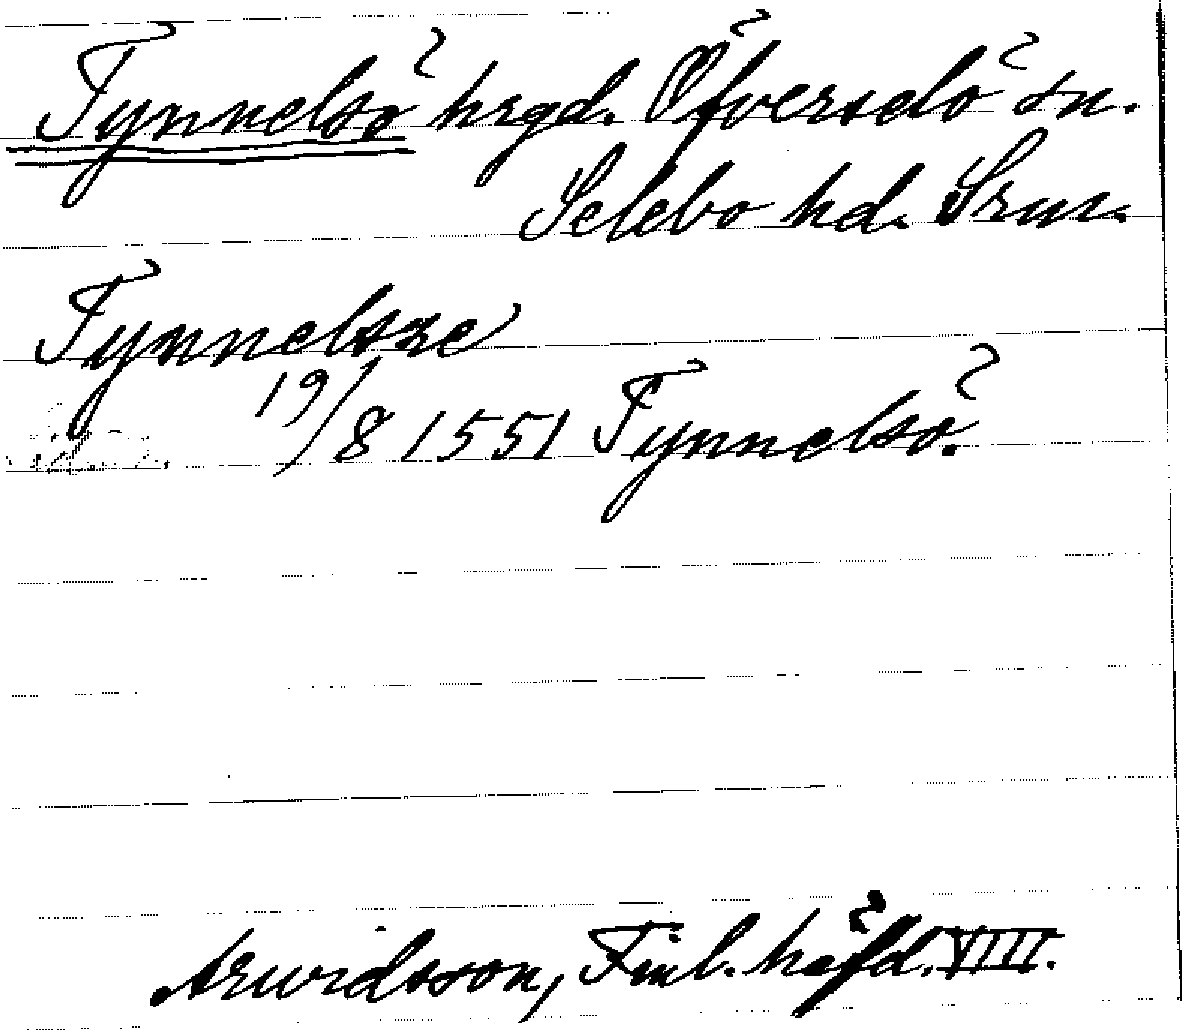 Tynnelsö hrgd. Öfverselö sn.
Selebo hd. Srm.
Tynnelsze
19/8 1551 Tynnelsö.
Arwidsson, Finl. häfd. VIII.